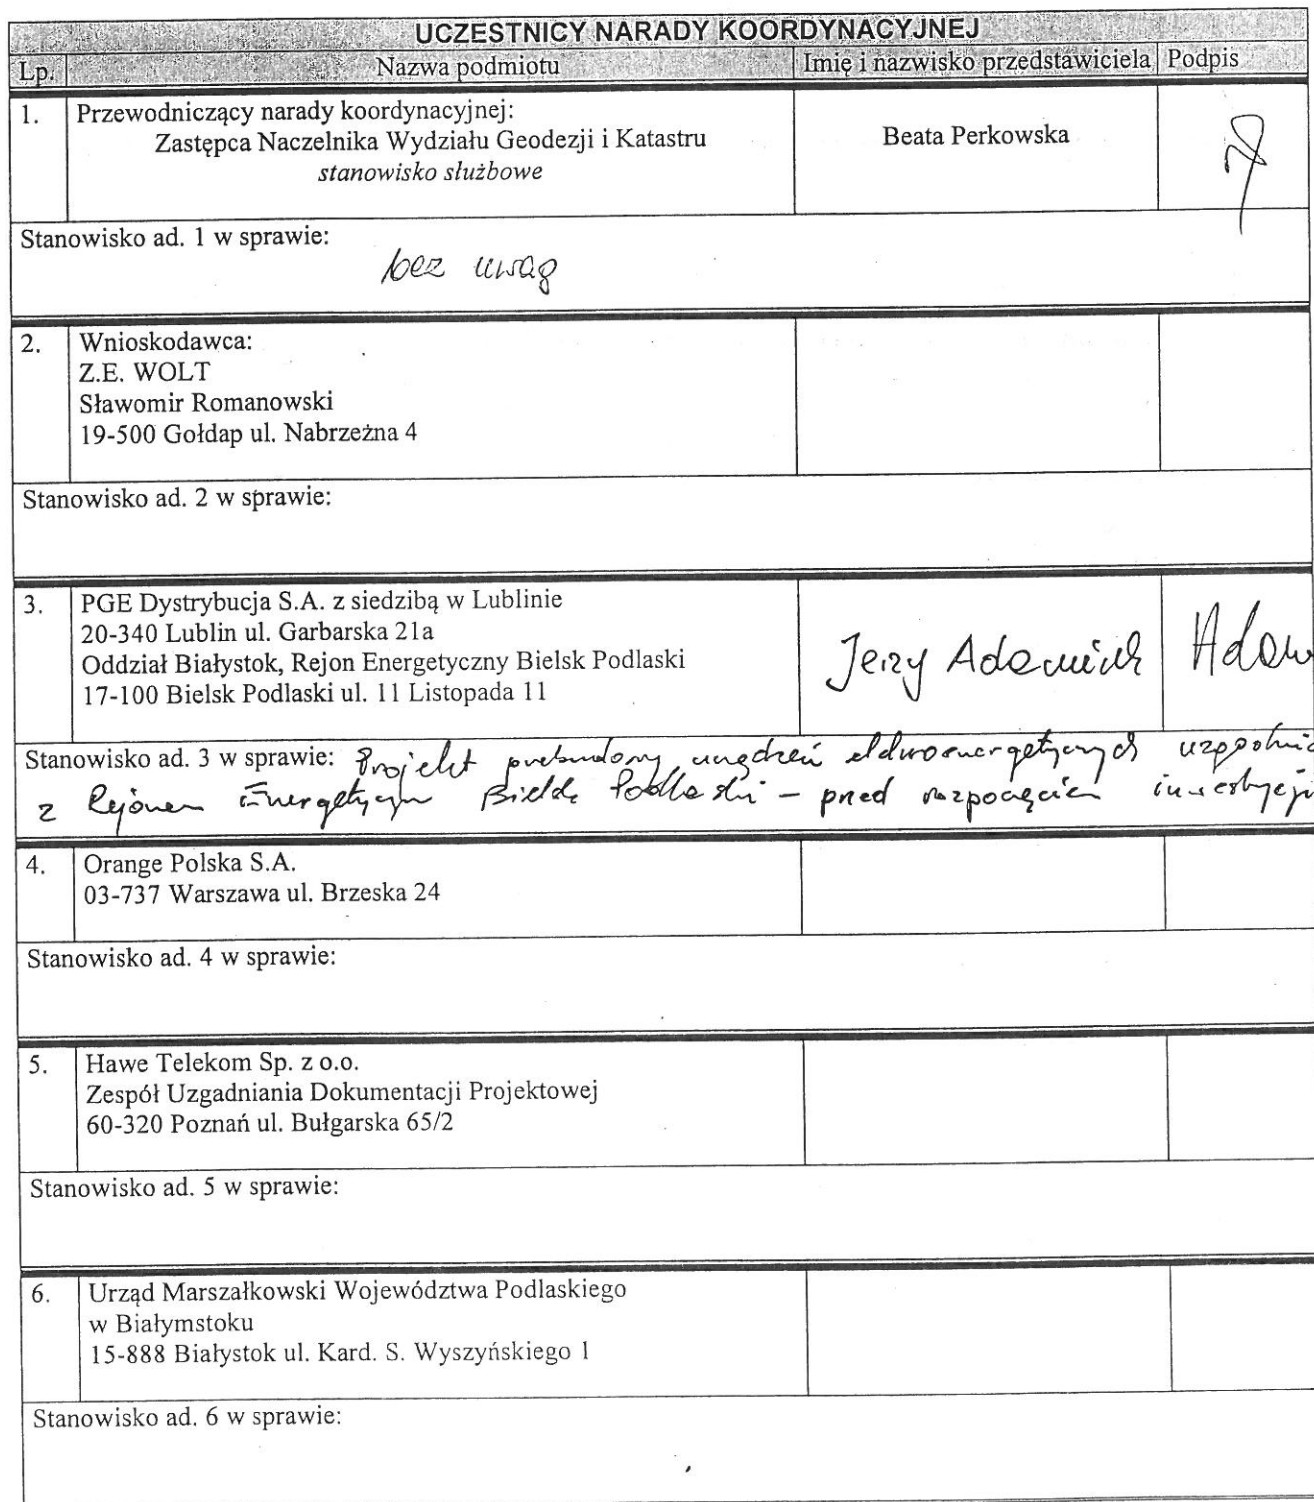 UCZESTNICY NARADY KOORDYNACYJNEJ
Lp. Nazwa podmiotu Imię i nazwisko przedstawiciela Podpis
1. Przewodniczący narady koordynacyjnej:
Zastępca Naczelnika Wydziału Geodezji i Katastru
stanowisko służbowe
Beata Perkowska
Stanowisko ad. 1 w sprawie:
bez uwag
2. Wnioskodawca:
Z.E. WOLT
Sławomir Romanowski
19-500 Gołdap ul. Nabrzeżna 4
Stanowisko ad. 2 w sprawie:
3. PGE Dystrybucja S.A. z siedzibą w Lublinie
20-340 Lublin ul. Garbarska 21a
Oddział Białystok, Rejon Energetyczny Bielsk Podlaski
17-100 Bielsk Podlaski ul. 11 Listopada 11
Jerzy Adamiuk
Stanowisko ad. 3 w sprawie: Projekt przebudowy urządzeń elektroenergetycznych
z Rejonem Energetycznym Bielsk Podlaski – przed rozpoczęciem inwestycji
4. Orange Polska S.A.
03-737 Warszawa ul. Brzeska 24
Stanowisko ad. 4 w sprawie:
5. Hawe Telekom Sp. z o.o.
Zespół Uzgadniania Dokumentacji Projektowej
60-320 Poznań ul. Bułgarska 65/2
Stanowisko ad. 5 w sprawie:
6. Urząd Marszałkowski Województwa Podlaskiego
w Białymstoku
15-888 Białystok ul. Kard. S. Wyszyńskiego 1
Stanowisko ad. 6 w sprawie: